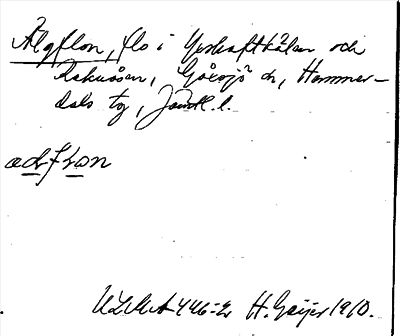 Älgflon, flo i Yxskaftkälen och
Raknäsen, Gåxsjö sn, Hammer-
dals tg, Jämtl. l.
ULMA 446:2 H. Geijer 1910.